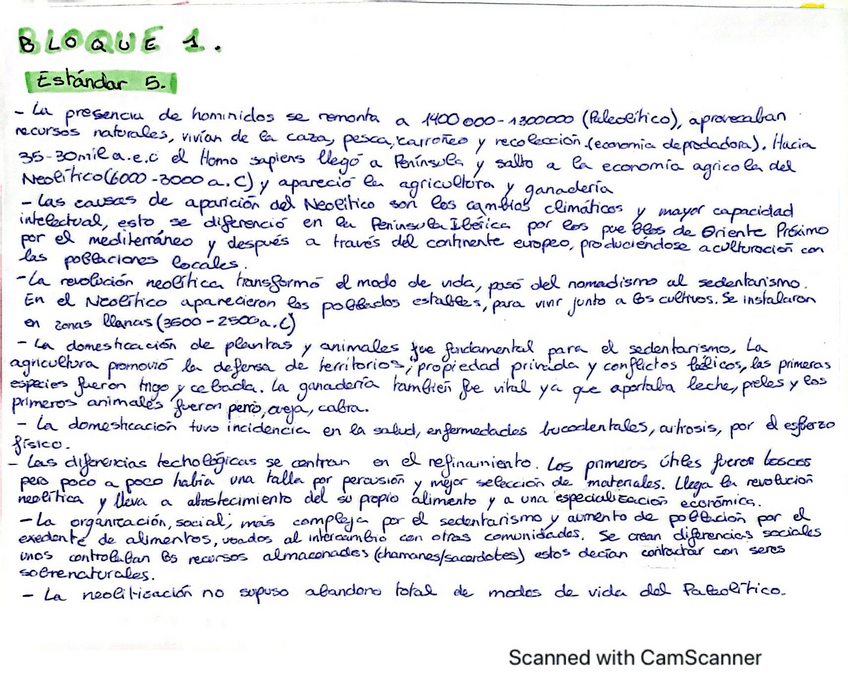 BLOQUE 1.
Estándar 5.
- La presencia de hominidos se remonta a 1400000-1300000 (Paleolítico), aprovecaban
recursos naturales, vivían de la caza, pesca, carroñeo y recolección (economia depredadora). Hacia
35-30mil a.e.c el Homo sapiens llegó a Península y salto a la economía agricola del
Neolítico (6000-3000 a.C) y apareció la agricultura y ganadería
- Las causas de aparición del Neolítico son los cambios climáticos y mayor capacidad
intelectual, esto se diferenció en la Península Ibérica por los pueblos de Oriente Próximo
por el mediterráneo y después a través del continente europeo, produciéndose aculturación con
las poblaciones locales.
- La revolución neolítica transformó el modo de vida, pasó del nomadismo al sedentarismo.
En el Neolítico aparecieron los poblados estables, para vivir junto a los cultivos. Se instalaron
en zonas llanas (3500-2500 a.C)
- La domesticación de plantas y animales fue fundamental para el sedentarismo. La
agricultura promovió la defensa de territorios, propiedad privada y conflictos bélicos, las primeras
especies fueron trigo y cebada. La ganadería también fue vital ya que aportaba leche, pieles y los
primeros animales fueron perro, oveja, cabra.
- La domesticación tuvo incidencia en la salud, enfermedades bucodentales, artrosis, por el esfuerzo
físico.
- Las diferencias technológicas se centran en el refinamiento. Los primeros útiles fueron toscos
pero poco a poco había una talla por percusión y mejor selección de materiales. Llega la revolución
neolítica y lleva a abastecimiento del su propio alimento y a una especialización económica.
- La organización, social, más compleja por el sedentarismo y aumento de población por el
exedente de alimentos, usados al intercambio con otras comunidades. Se crean diferencias sociales
unos controlaban los recursos almacenados (chamanes/sacerdotes) estos decían contactar con seres
sobrenaturales.
- La neolitización no supuso abandono total de modos de vida del Paleolítico.
Scanned with CamScanner